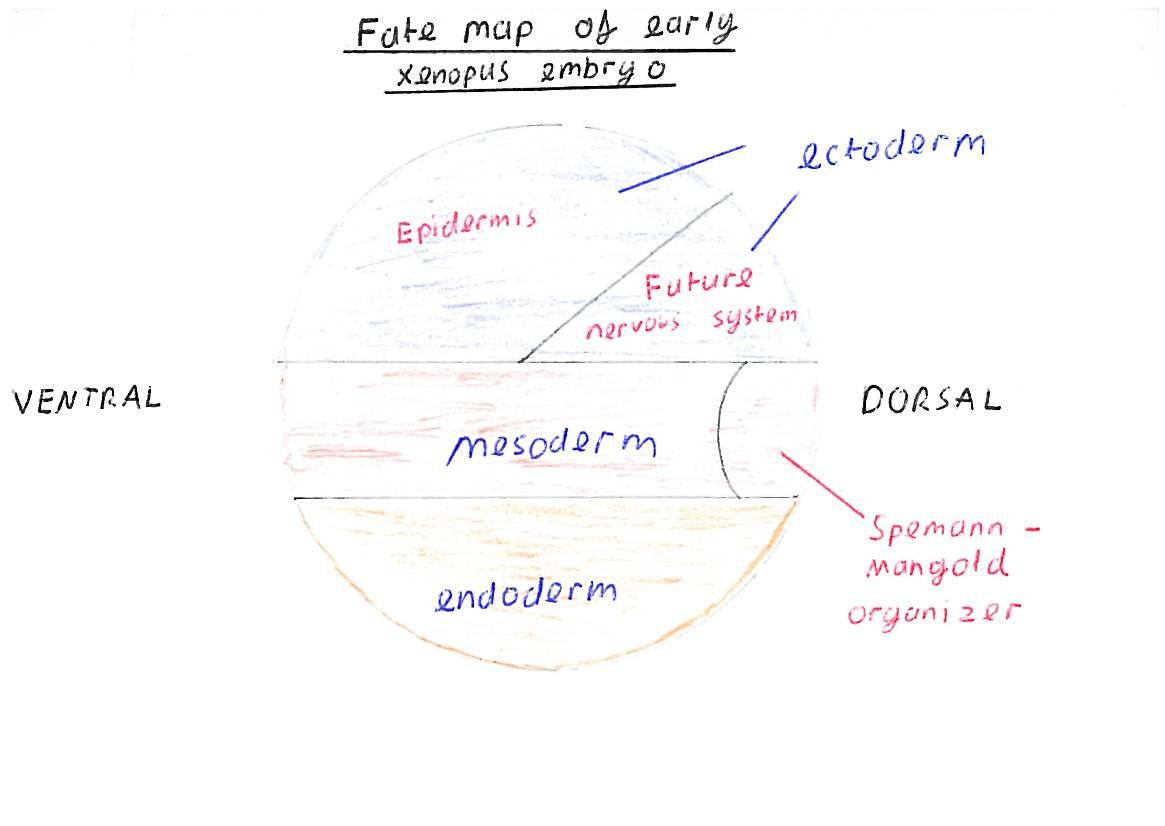 Fate map of early
xenopus embryo
ectoderm
Epidermis
Future
nervous system
VENTRAL
DORSAL
mesoderm
Spemann -
Mangold
organizer
endoderm